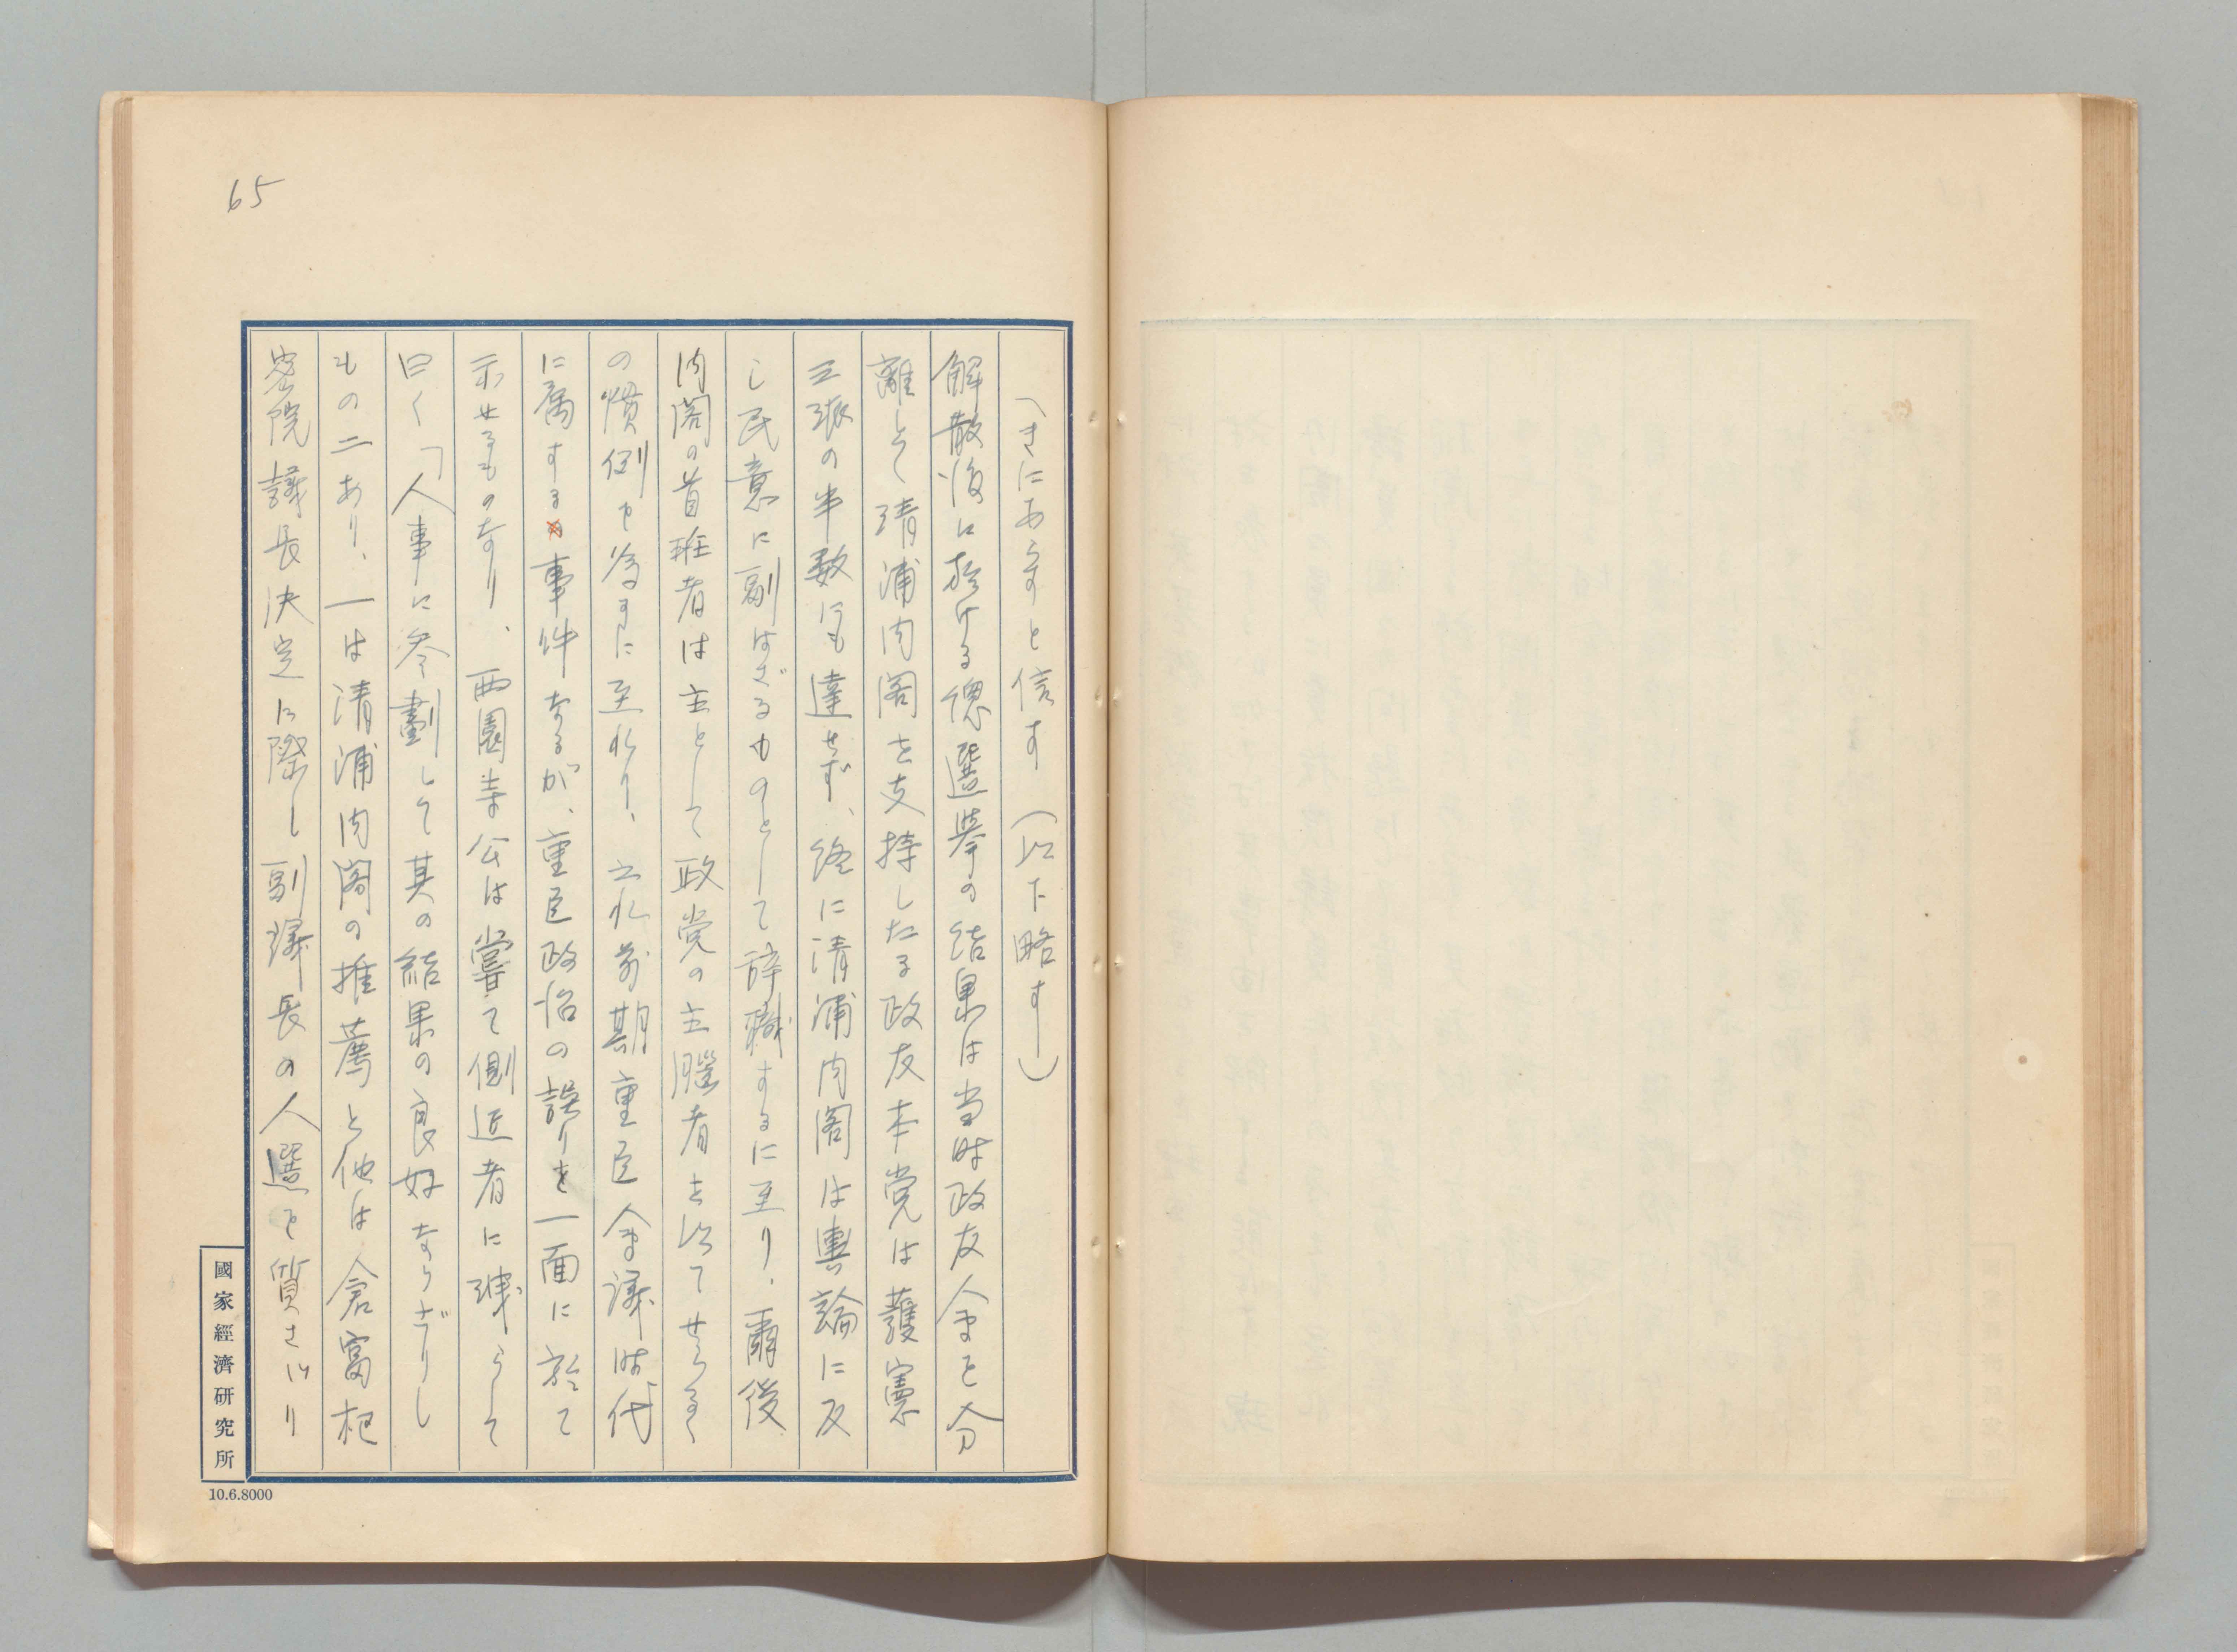 65
(きにあらずと信す (以下略す)
解散後に於ける總選挙の結果は当時政友会を分
離して清浦内閣を支持したる政友本党は護憲
三派の半数にも達せず、終に清浦内閣は輿論に反
し民意に副はざるものとして辞職するに至り、爾後
内閣の首班者は主として政党の主腦者を以てせらるゝ
の慣例を為すに至れり、之れ前期重臣会議時代
に属する事件なるが、重臣政治の誤りを一面に於て
示せるものなり、西園寺公は嘗て側近者に洩らして
曰く「人事に参劃して其の結果の良好ならざりし
もの二あり、一は清浦内閣の推薦と他は倉富枢
密院議長決定に際し副議長の人選を質さゞり
國家經濟研究所
10.6.8000